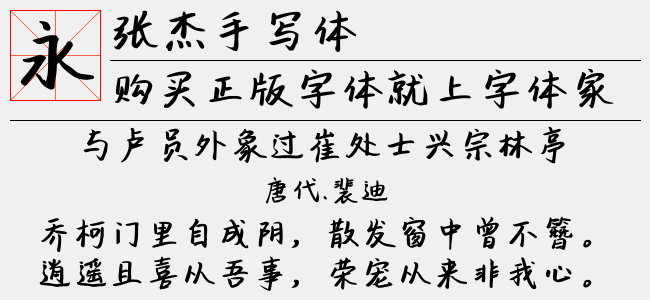 永
张杰手写体
购买正版字体就上字体家
与卢员外象过崔处士兴宗林亭
唐代.裴迪
乔柯门里自成阴，散发窗中曾不簪。
逍遥且喜从吾事，荣宠从来非我心。